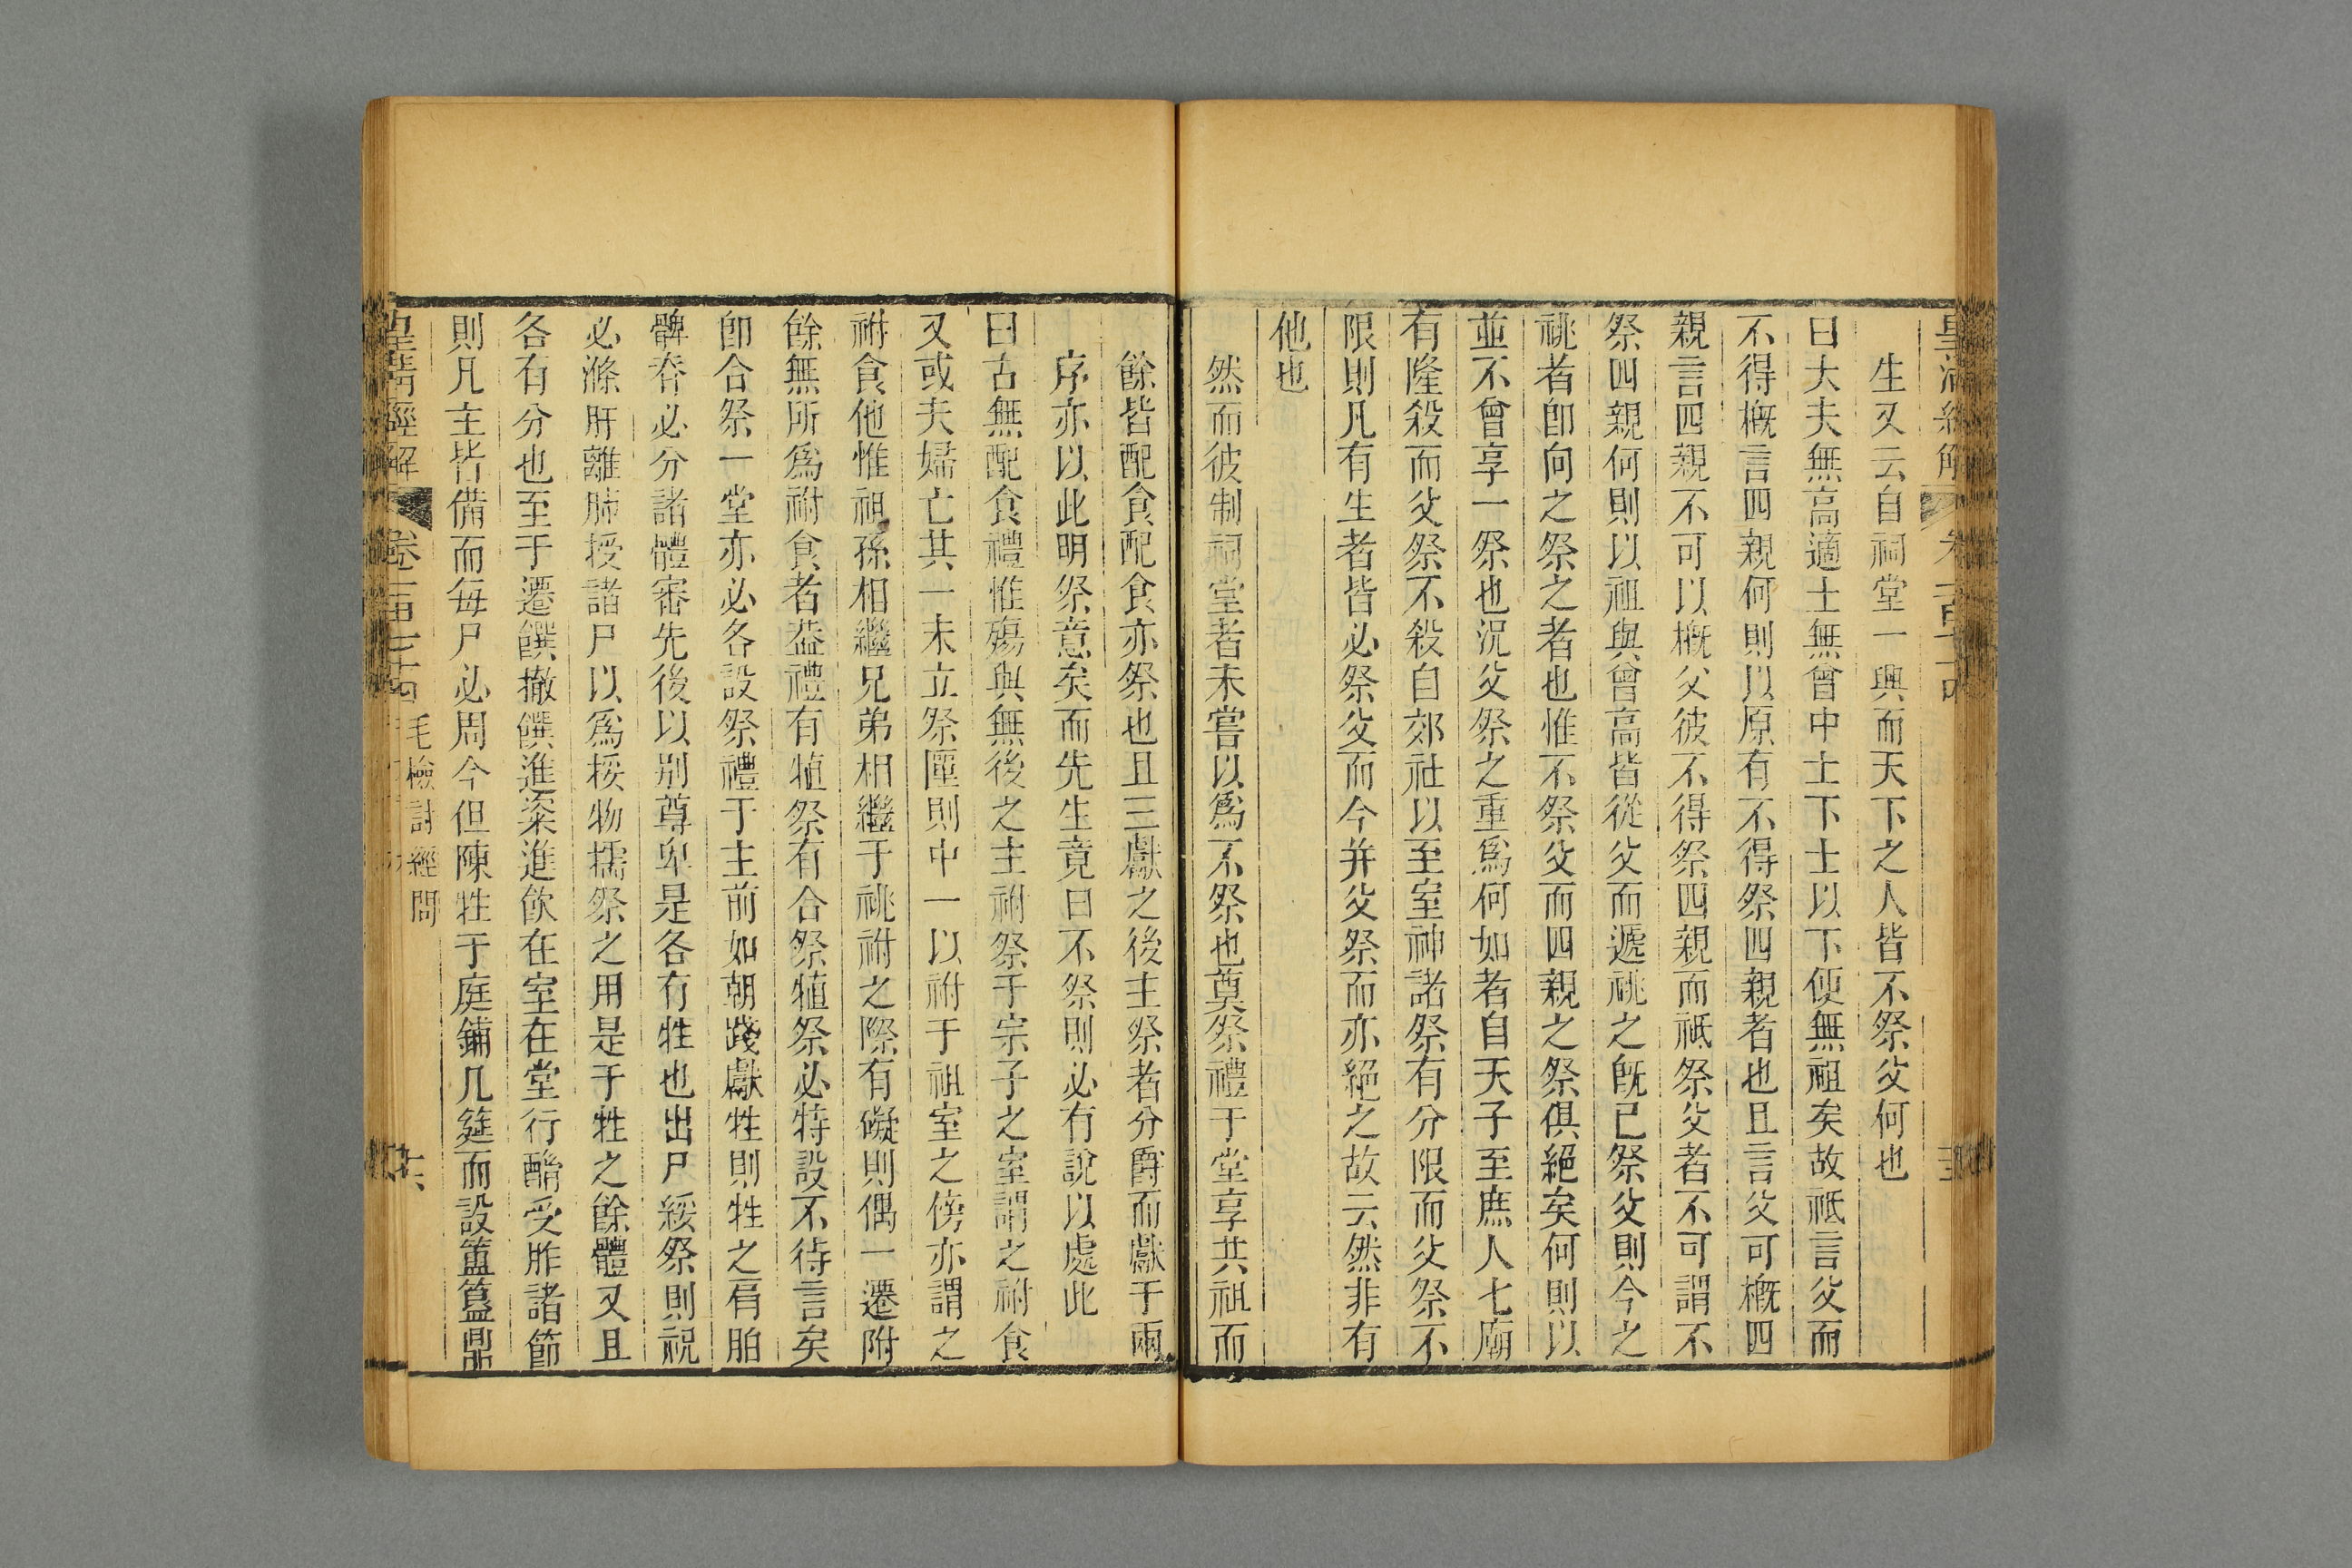 生又云自祠堂一興而天下之人皆不祭父何也
曰大夫無高適士無曾中士下士以下便無祖矣故祗言父而
不得概言四親何則以原有不得祭四親者也且言父可概四
親言四親不可以概父彼不得祭四親而祗祭父者不可謂不
祭四親何則以祖與曾高皆從父而遞祧之旣已祭父則今之
祧者卽向之祭之者也惟不祭父而四親之祭俱絕矣何則以
並不曾享一祭也況父祭之重爲何如者自天子至庶人七廟
有隆殺而父祭不殺自郊社以至室神諸祭有分限而父祭不
限則凡有生者皆必祭父而今并父祭而亦絕之故云然非有
他也
然而彼制祠堂者未嘗以爲不祭也奠祭禮于堂享共祖而
餘皆配食配食亦祭也且三獻之後主祭者分爵而獻于兩
序亦以此明祭意矣而先生竟曰不祭則必有說以處此
曰古無配食禮惟殤與無後之主祔祭于宗子之室謂之祔食
又或夫婦亡其一未立祭匰則中一以祔于祖室之傍亦謂之
祔食他惟祖孫相繼兄弟相繼于祧祔之際有礙則偶一遷附
餘無所爲祔食者葢禮有犆祭有合祭犆祭必特設不待言矣
卽合祭一堂亦必各設祭禮于主前如朝踐獻牲則牲之肩胉
髀脊必分諸體審先後以別尊卑是各有牲也出尸綏祭則祝
必滌肝離肺授諸尸以爲挼物擩祭之用是于牲之餘體又且
各有分也至于遷饌撤饌進粢進飮在室在堂行酳受胙諸節
則凡主皆備而每尸必周今但陳牲于庭鋪几筵而設簠簋鼎
皇清經解
卷一百七十四
毛檢討經問